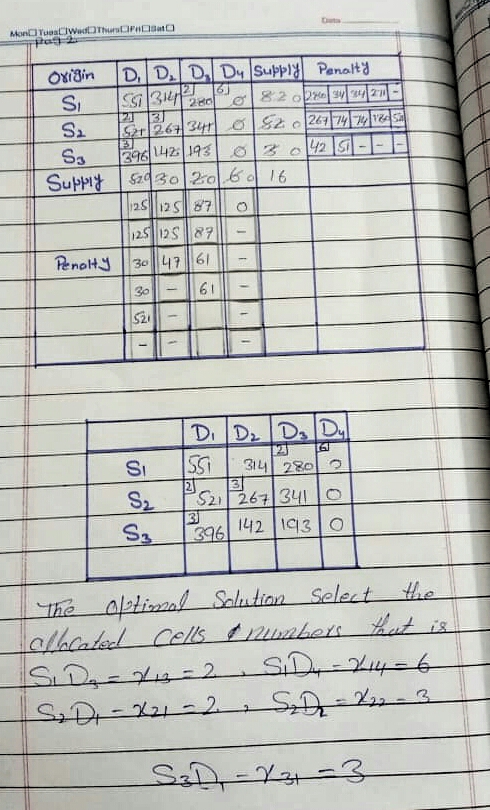 Mon Tues Wed Thurs Fri Sat
Date
Page 2
Origin D1 D2 D3 D4 Supply Penalty
S1 551 314 2 280 6 0 8 2 0 280 34 34 271 -
S2 2 521 3 267 341 0 5 2 0 267 74 74 180 521
S3 3 396 142 193 0 3 0 42 51 - - -
Supply 520 30 20 60 16
125 125 87 0
125 125 87 -
Penalty 30 47 61 -
30 - 61 -
521 - -
- - -
D1 D2 D3 D4
S1 551 314 2 280 6 0
S2 2 521 3 267 341 0
S3 3 396 142 193 0
The optimal Solution Select the
allocated cells numbers that is
S1D3 = x13 = 2 , S1D4 - x14 = 6
S2D1 - x21 = 2 , S2D2 - x22 - 3
S3D1 - x31 = 3